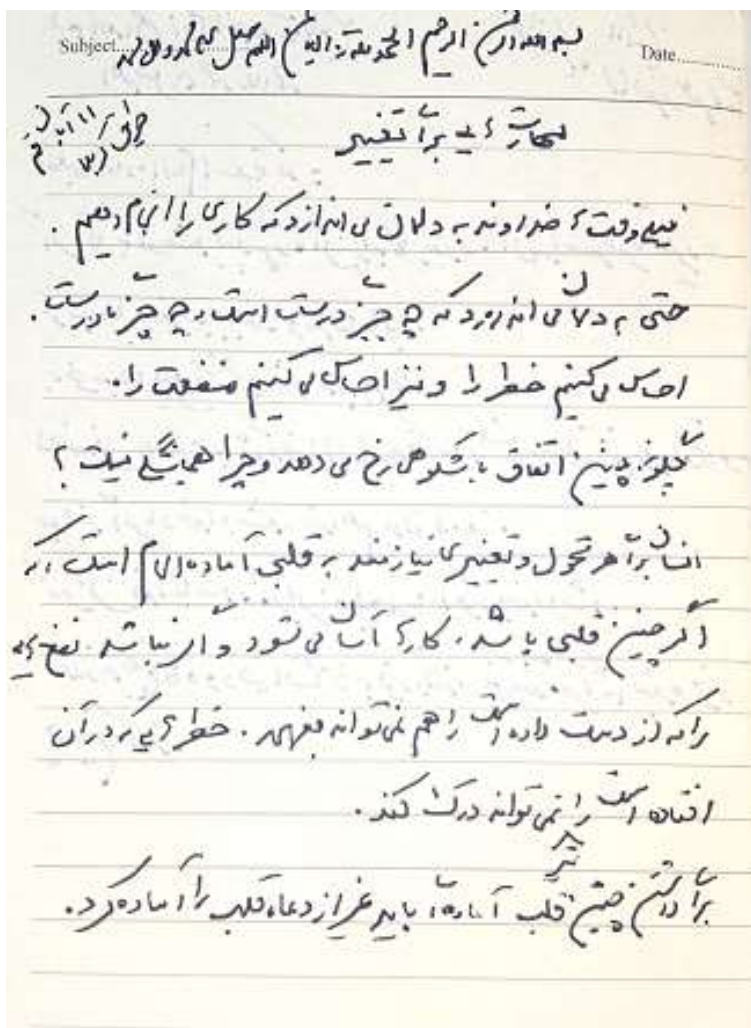 Subject..... بسم الله الرحمن الرحیم الحمدلله رب العالمین اللهم صل علی محمد و آل محمد Date.............
مهارت هایی برای تغییر
خیلی وقت ها خداوند به دلمان می اندازد که کاری را انجام دهیم.
حتی به دلمان می اندازد که چه چیز درست است و چه چیز نادرست.
احساس می کنیم خطر را و نیز احساس می کنیم منفعت را.
چگونه چنین اتفاق باشکوهی رخ می دهد و چرا همیشگی نیست؟
انسان برای هر تحول و تغییری نیازمند به قلبی آماده الهام است که
اگر چنین قلبی باشد، کارها آسان می شود و اگر نباشد نفع هایی
را که از دست داده است را هم نمی تواند بفهمد. خطرهایی که در آن
افتاده است را نیز نمی تواند درک کند.
برای داشتن چنین قلب آماده ای باید غیر از دعا، قلب را آماده کرد.